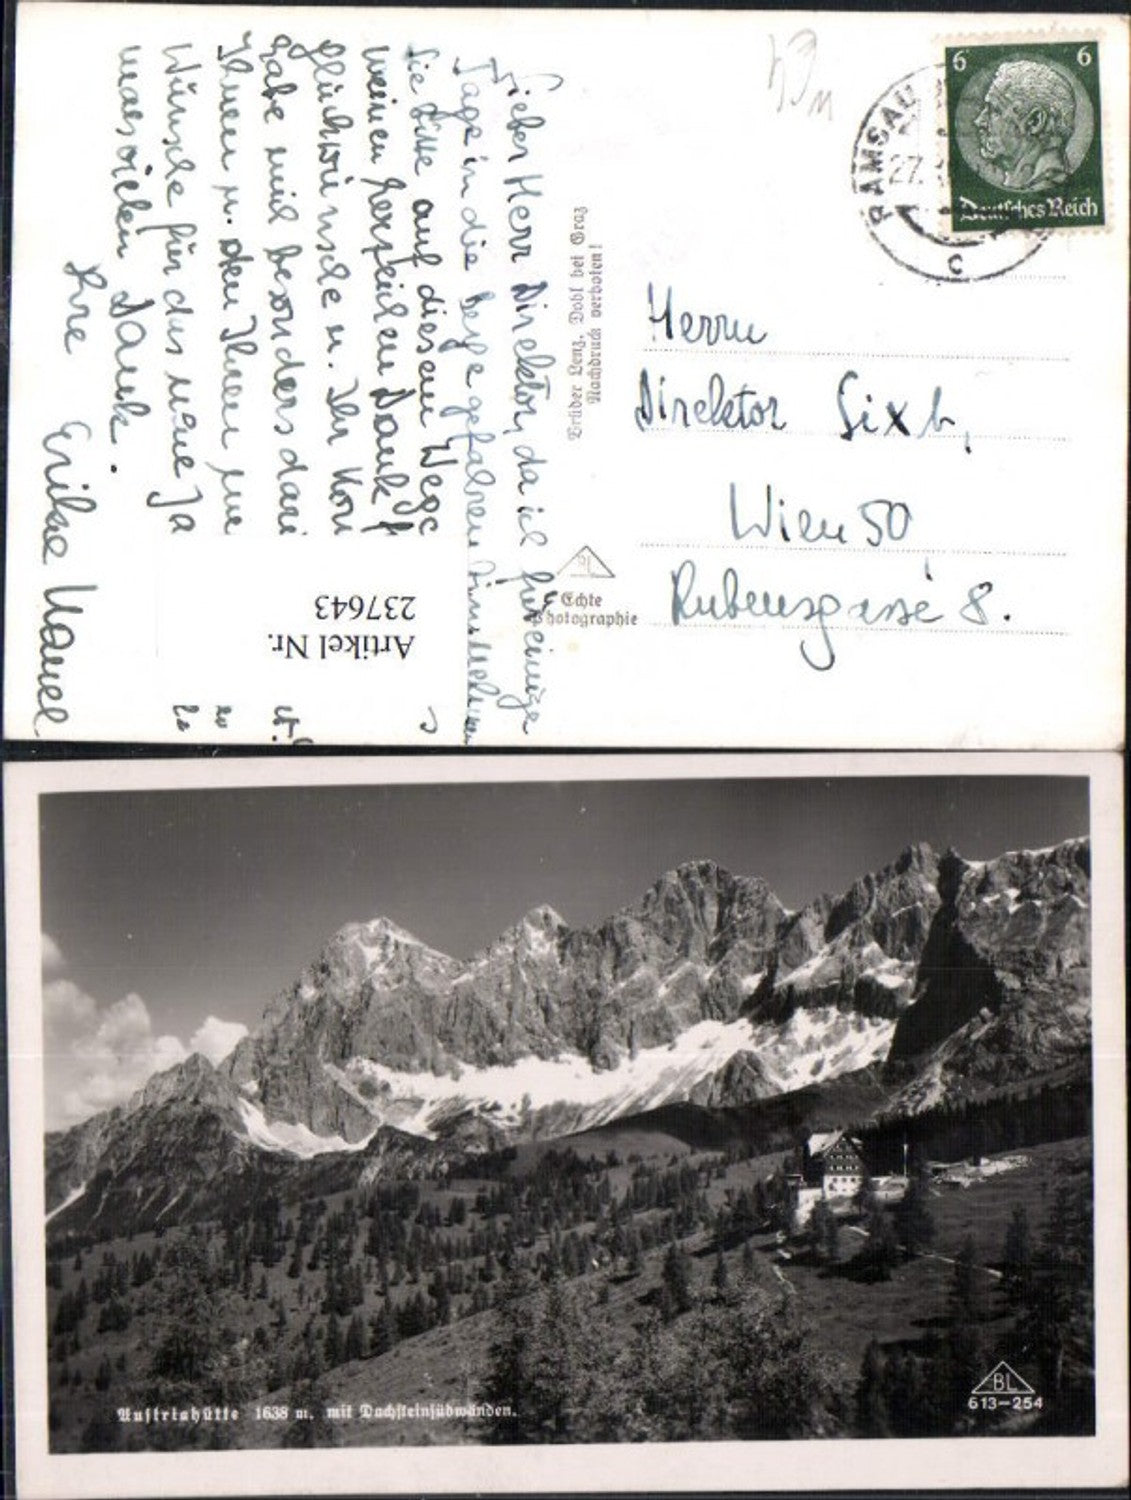 Lieber Herr Direktor, da ich für einige
Tage in die Berge gefahren bin, nehmen
Sie bitte auf diesem Wege
meinen herzlichen Dank f
Glückwünsche u. Ihr Kon
gabe weil besonders dari
Ihnen u. den Ihren
Wünsche für das neue Ja
vielen Dank.
Ihre Erika
Artikel Nr.
237643
Brüder Lenz, Dobl bei Graz
Nachdruck verboten!
BL
Echte
Photographie
RAMSAU
27.
c
6 6
Deutsches Reich
Herrn
Direktor Sixt,
Wien 50,
Rubensgasse 8.
Austriahütte 1638 m. mit Dachsteinsüdwänden.
BL
613-254